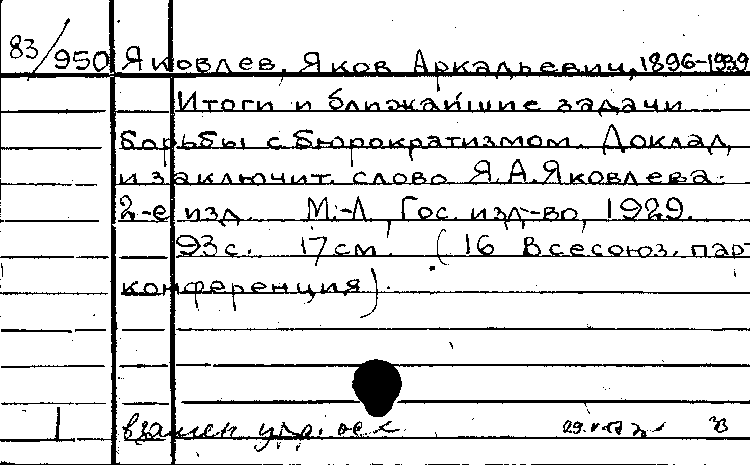 83/950 Яковлев, Яков Аркадьевич, 1896-1939
Итоги и ближайшие задачи
борьбы с бюрократизмом. Доклад
и заключит. слово Я.А.Яковлева.
2-е изд. М.-Л., Гос. изд-во, 1929.
93 с. 17 см. (16 Всесоюз. парт
конференция).
1 взамен